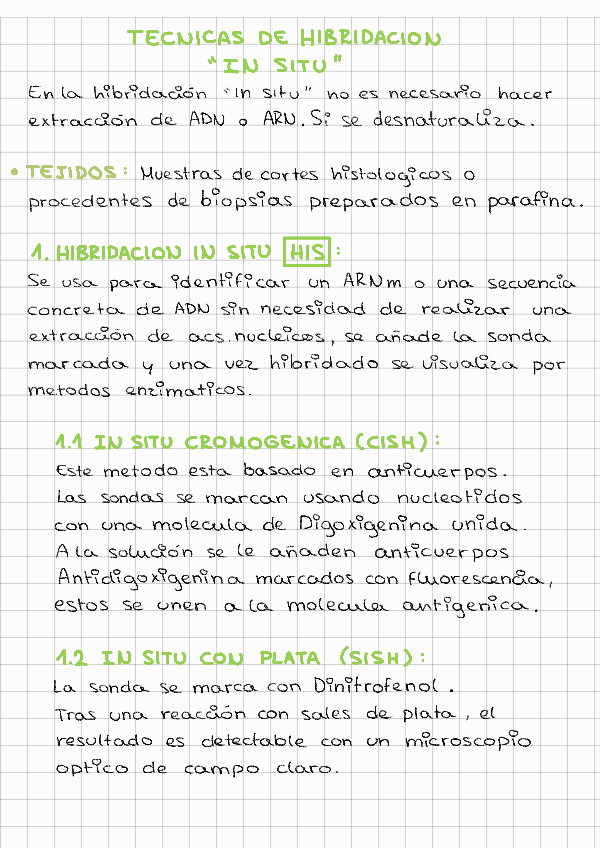 TECNICAS DE HIBRIDACION
"IN SITU"
En la hibridación "in situ" no es necesario hacer
extracción de ADN o ARN. Si se desnaturaliza.
• TEJIDOS: Muestras de cortes histologicos o
procedentes de biopsias preparados en parafina.
1. HIBRIDACION IN SITU HIS:
Se usa para identificar un ARNm o una secuencia
concreta de ADN sin necesidad de realizar una
extracción de acs. nucleicos, se añade la sonda
marcada y una vez hibridado se visualiza por
metodos enzimaticos.
1.1 IN SITU CROMOGENICA (CISH):
Este metodo esta basado en anticuerpos.
Las sondas se marcan usando nucleotidos
con una molecula de Digoxigenina unida.
A la solución se le añaden anticuerpos
Antidigoxigenina marcados con fluorescencia,
estos se unen a la molecula antigenica.
1.2 IN SITU CON PLATA (SISH):
La sonda se marca con Dinitrofenol.
Tras una reacción con sales de plata, el
resultado es detectable con un microscopio
optico de campo claro.